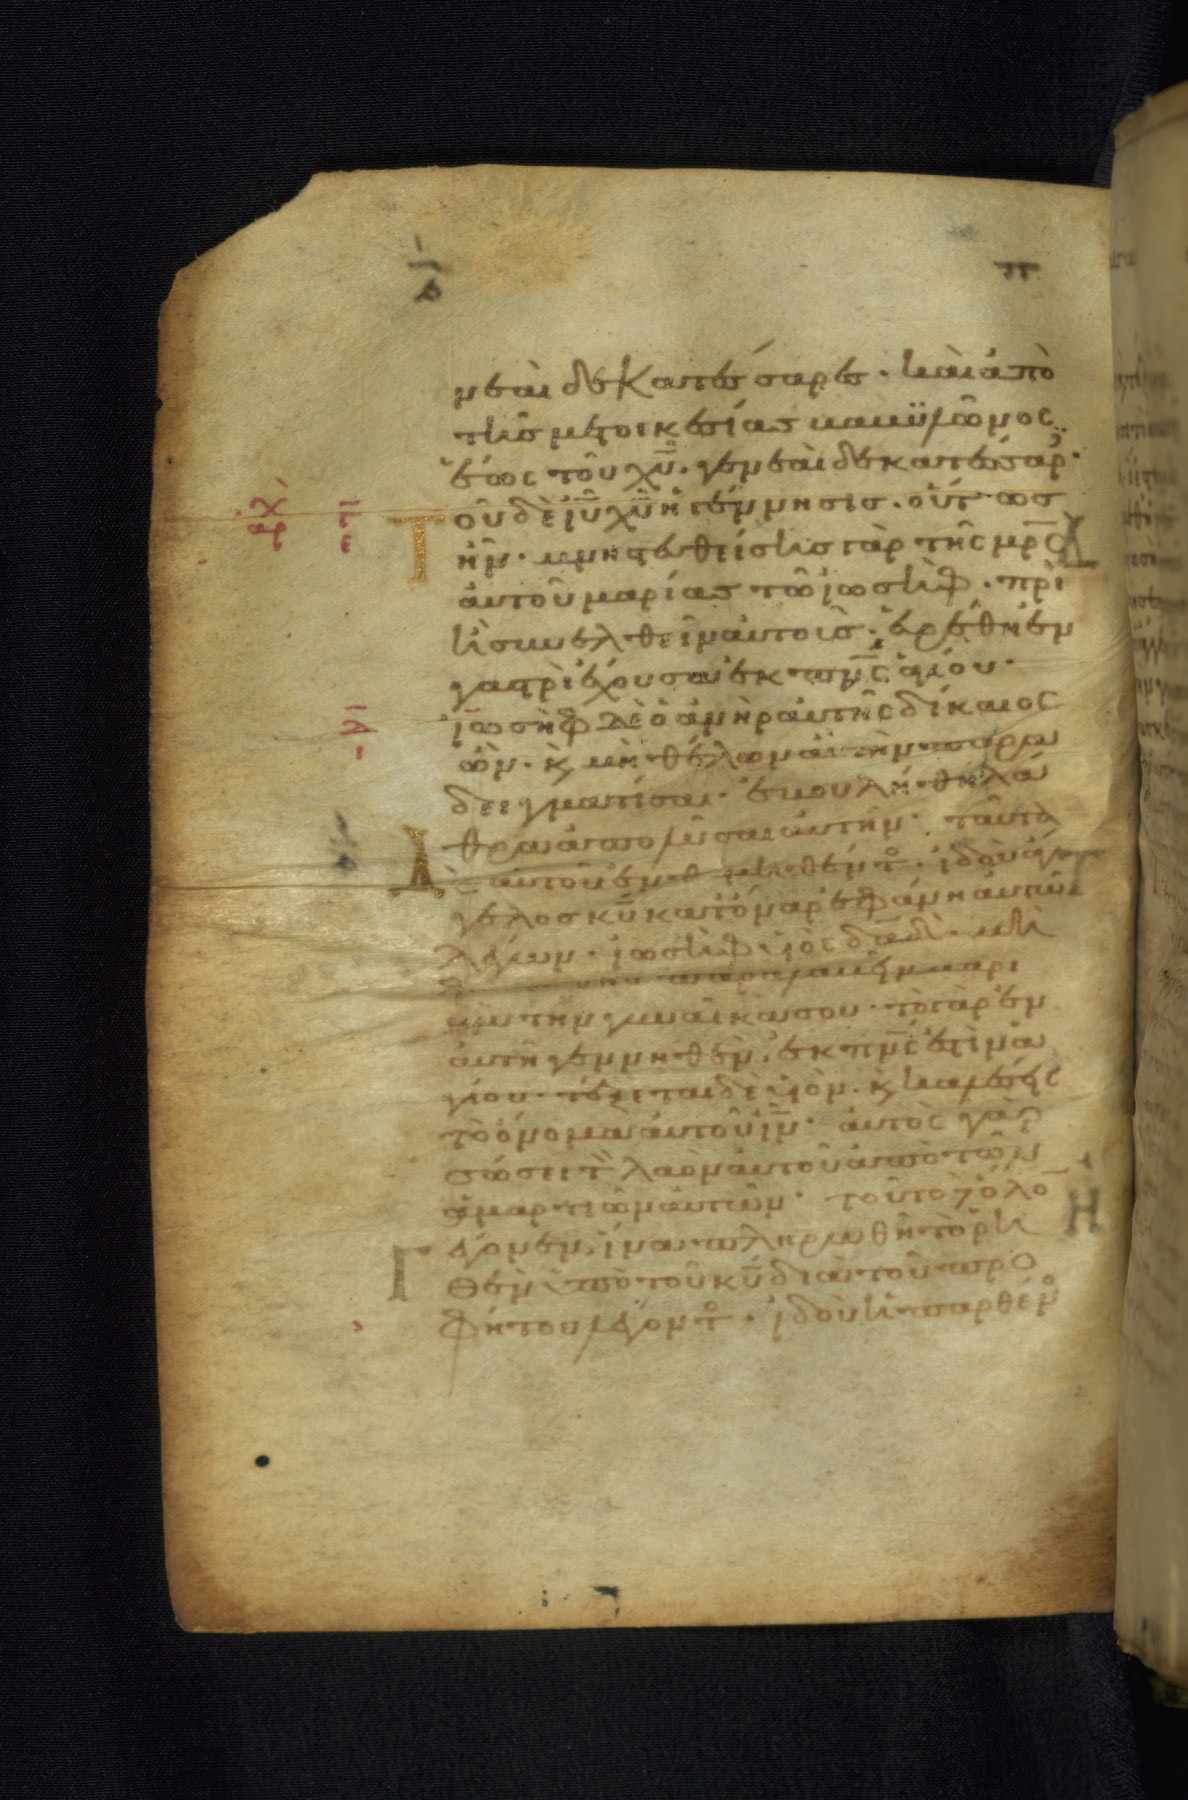 νεαὶ δεκατέσσαρες· καὶ ἀπὸ
τῆς μετοικεσίας βαβυλῶνος
ἕως τοῦ χῦ· γενεαὶ δεκατέσσαρ·
Τοῦ δὲ ἰῦ χῦ ἡ γέννησις· οὕτως
ἦν· μνηστευθείσης γὰρ τῆς μρς
αὐτοῦ μαρίας τῶ ἰωσὴφ· πρὶν
ἢ συνελθεῖν αὐτοὺς· εὑρέθη ἐν
γαστρὶ ἔχουσα ἐκ πνς ἁγίου·
ἰωσὴφ δὲ ὁ ἀνὴρ αὐτῆς δίκαιος
ὢν· κ μὴ θέλων αὐτὴν παρα
δειγματίσαι· ἐβουλήθη λά
θρα ἀπολῦσαι αὐτήν· ταῦτα
Δὲ αὐτοῦ ἐνθυμηθέντος· ἰδοὺ ἄγ
γελος κῦ κατ' ὄναρ ἐφάνη αὐτῶ
λέγων· ἰωσὴφ υἱὸς δαδ· μὴ
παραλαβεῖν μαρι
ὰμ τὴν γυναῖκα σου· τὸ γὰρ ἐν
αὐτῆ γεννηθὲν, ἐκ πνς ἐστὶν ἁ
γίου· τέξεται δὲ υἱὸν· κ καλέσεις
τὸ ὄνομα αὐτοῦ ἰν· αὐτὸς γὰρ
σώσει τὸν λαὸν αὐτοῦ ἀπὸ τῶν
ἁμαρτιῶν αὐτῶν· τοῦτο δὲ ὅλο
Γέγονεν, ἵνα πληρωθῆ τὸ ῥη
θὲν ὑπὸ τοῦ κῦ διὰ τοῦ προ
φήτου λέγοντος· ἰδοὺ ἡ παρθένος